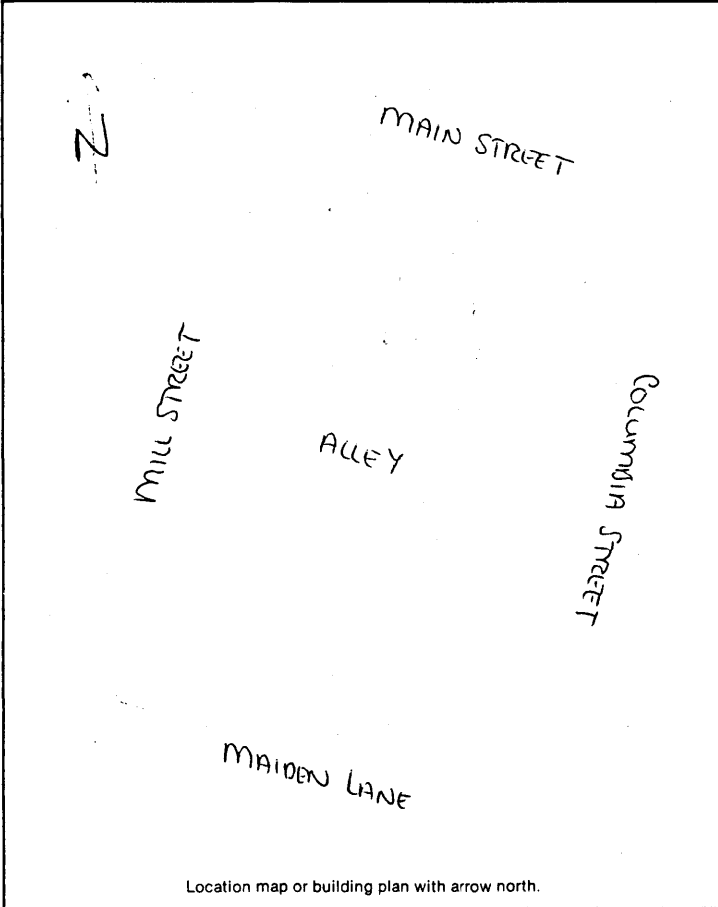 N
MAIN STREET
MILL STREET
ALLEY
COLUMBIA STREET
MAIDEN LANE
Location map or building plan with arrow north.